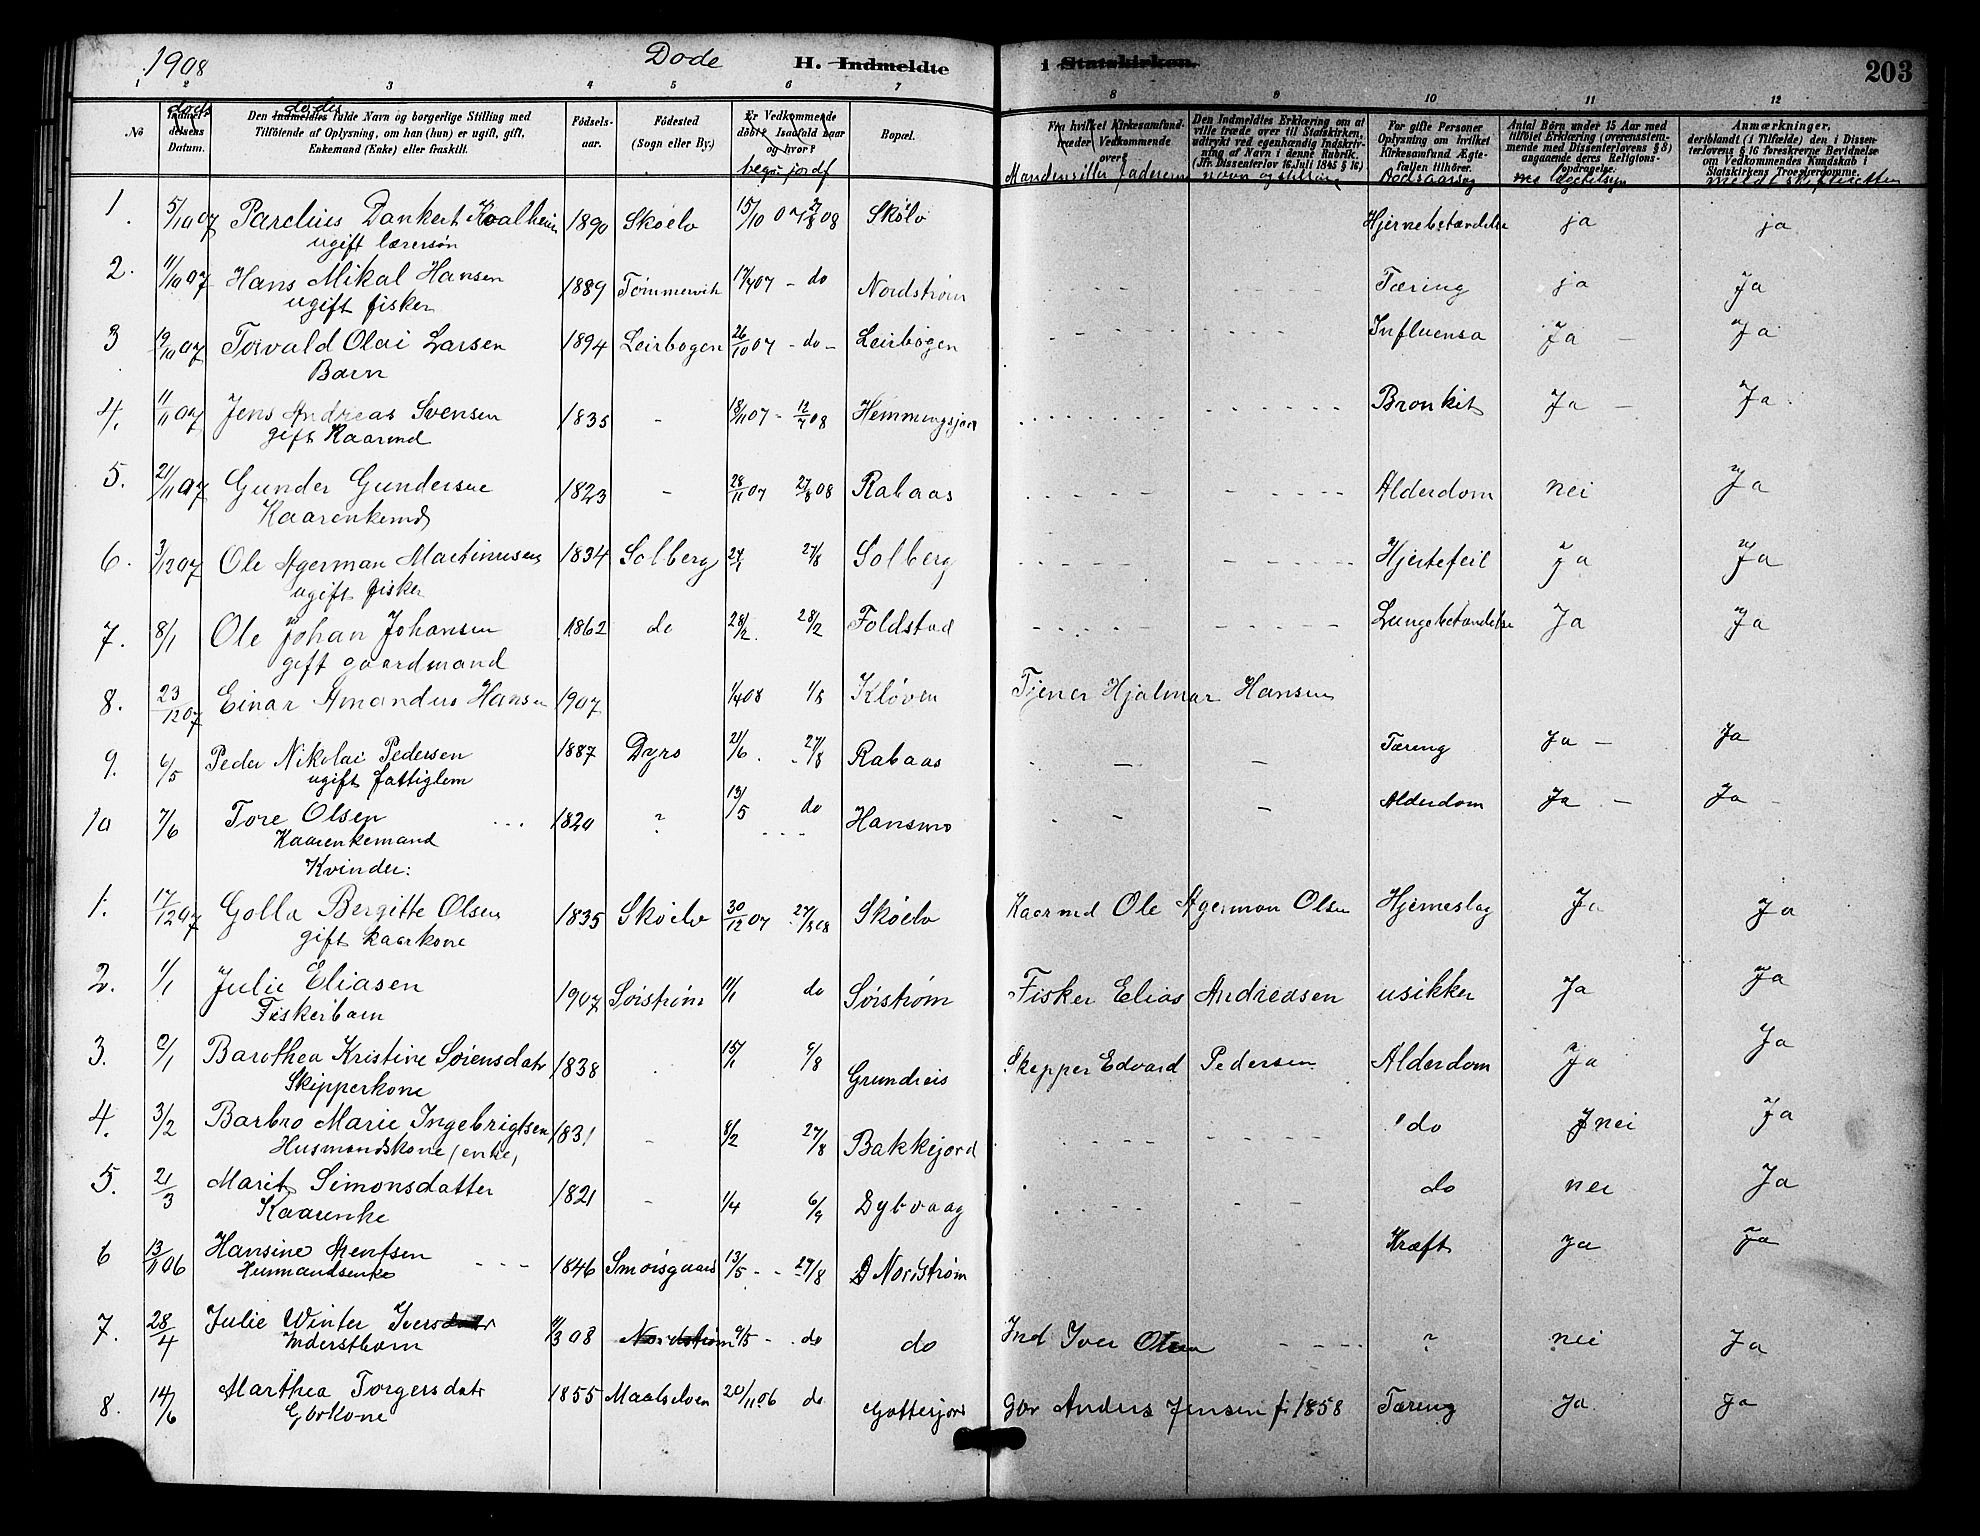 1908 Døde H. Indmeldte i Statskirken. 203
1 2 3 4 5 6 7 8 9 10 11 12
No
døds Indmeldelsens Datum.
Den Indmeldtes dødes fulde Navn og borgerlige Stilling med Tilföiende af Oplysning, om han (hun) er ugift, gift, Enkemand (Enke) eller fraskilt.
Födselsaar.
Födested (Sogn eller By.)
Er Vedkommende döbt? Isaafald naar og hvor? begr. jordf
Bopæl.
Fra hvilket Kirkesamfund træder Vedkommende over?
Den Indmeldtes Erklæring om at ville træde over til Statskirken, udtrykt ved egenhændig Indskrivning af Navn i denne Rubrik. (Jfr. Dissenterlov 16 Juli 1845 § 16) navn og stilling
For gifte Personer Oplysning om hvilket Kirkesamfund Ægtefællen tilhörer. Dødsaarsag
Antal Börn under 15 Aar med tilföiet Erklæring (overensstemmende med Dissenterlovens § 8) angaaende deres Religionsopdragelse.
Anmærkninger, deriblandt (i Tilfælde) den i Dissenterlovens § 16 foreskrevne Bevidnelse om Vedkommendes Kundskab i Statskirkens Troesbærdomme. meldt skifteretten
1. 5/10 07 Parelius Dankert Kvalheim 1890 Skøelv 15/10 07 08 Skølv Hjernebetændelse ja ja
ugift lærersøn
2. 11/10 07 Hans Mikal Hansen 1889 Tømmervik 07 - do Nordstrøm - - - - - - - - Tæring ja Ja
ugift fisker
3 19/10 07 Torvald Olai Larsen 1894 Leirbogen 26/10 07 - do - Leirbogen - - - - - - - - Influensa Ja - Ja
Barn
4. 11/11 07 Jens Andreas Svensen 1835 - 18/11 07 - 12/7 08 Hemmingsjor - - - - - - - - Bronkit Ja - Ja
gift Kaarmd
5. 21/11 07 Gunder Gundersen 1823 - 28/11 07 27/8 08 Rabaas - - - - - - - - Alderdom nei Ja
Kaarenkemd
6. 3/12 07 Ole Agerman Martinusen 1834 Solberg 27/1 27/8 Solberg - - - - - - - - Hjertefeil Ja Ja
ugift fisker
7. 8/1 Ole Johan Johansen 1862 do 28/2 28/2 Foldstad - - - - - - - - Lungebetændelse Ja Ja
gift gaardmand
8. 23/12 07 Einar Amandus Hansen 1907 1/4 08 1/8 Kløven Tjener Hjalmar Hansen
9. 6/5 Peder Nikolai Pedersen 1887 Dyrø 21/6 27/8 Rabaas - - Tæring Ja - Ja
ugift fattiglem
10 7/6 Tore Olsen 1820 ? 13/5 do Hansmo - - Alderdom Ja - Ja -
Kaarenkemand
Kvinder:
1. 17/12 07 Golla Bergitte Olsen 1835 Skøelv 30/12 07 27/8 08 Skøelv Kaarmd Ole Agerman Olsen Hjerneslag Ja Ja
gift kaarkone
2. 1/1 Julie Eliasen 1907 Sørstrøm 11/1 do Sørstrøm Fisker Elias Andreasen usikker Ja Ja
Fiskerbarn
3. Barothea Kristine Sørensdatr 1838 15/1 6/8 Grundreis Skipper Edvard Pedersen Alderdom Ja Ja
Skipperkone
4. 3/2 Barbro Marie Ingebrigtsen 1831 - 8/2 27/8 Bakkejord - - - - - - - - do nei Ja
Husmandskone (enke)
5. 21/3 Marit Simonsdatter 1821 - 1/4 6/9 Dybvaag - - - - - - do nei Ja
Kaarenke
6 13/11 06 Hansine Arentsen - - - 1846 Smørsgaard 13/5 - - 27/8 Nordstrøm Kræft Ja Ja
Husmandsenke
7. 28/4 Julie Winter Iversdatr 11/3 08 Nordstrøm 9/5 - do do Ind Iver Olsen - - - - ? nei Ja
Inderstbarn
8. 14/6 Marthea Torgersdatr 1855 Maalselven 20/11 06 do Gottesjord Gbr Anders Jensen f. 1858 Tæring Ja Ja
Gbrkone